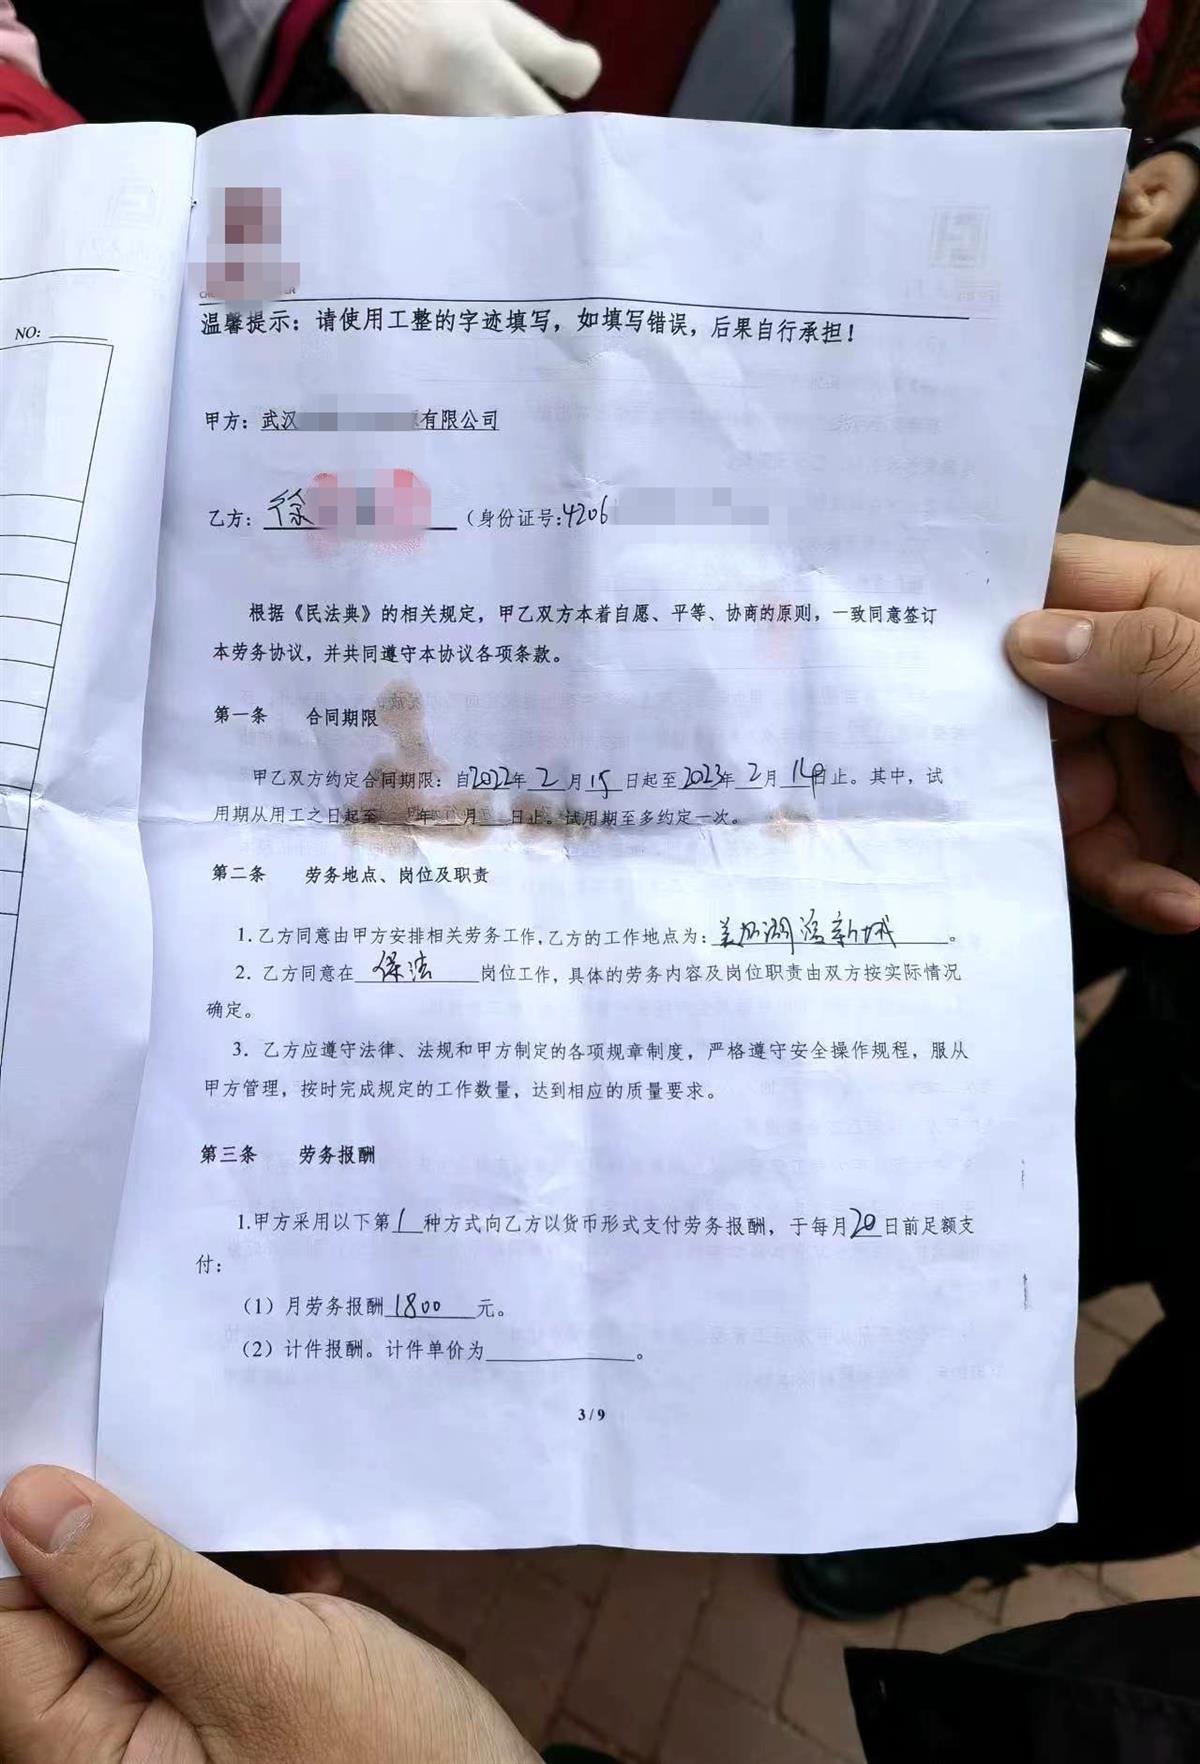 NO:
温馨提示：请使用工整的字迹填写，如填写错误，后果自行承担！
甲方：武汉 有限公司
乙方：徐 （身份证号:4206
根据《民法典》的相关规定，甲乙双方本着自愿、平等、协商的原则，一致同意签订
本劳务协议，并共同遵守本协议各项条款。
第一条 合同期限
甲乙双方约定合同期限：自2022年2月15日起至2023年2月14日止。其中，试
用期从用工之日起至 年 月 日止。试用期至多约定一次。
第二条 劳务地点、岗位及职责
1.乙方同意由甲方安排相关劳务工作,乙方的工作地点为：美加湖滨新城。
2. 乙方同意在保洁岗位工作，具体的劳务内容及岗位职责由双方按实际情况
确定。
3. 乙方应遵守法律、法规和甲方制定的各项规章制度，严格遵守安全操作规程，服从
甲方管理，按时完成规定的工作数量，达到相应的质量要求。
第三条 劳务报酬
1.甲方采用以下第1种方式向乙方以货币形式支付劳务报酬，于每月20日前足额支
付：
（1）月劳务报酬1800元。
（2）计件报酬。计件单价为 。
3 / 9